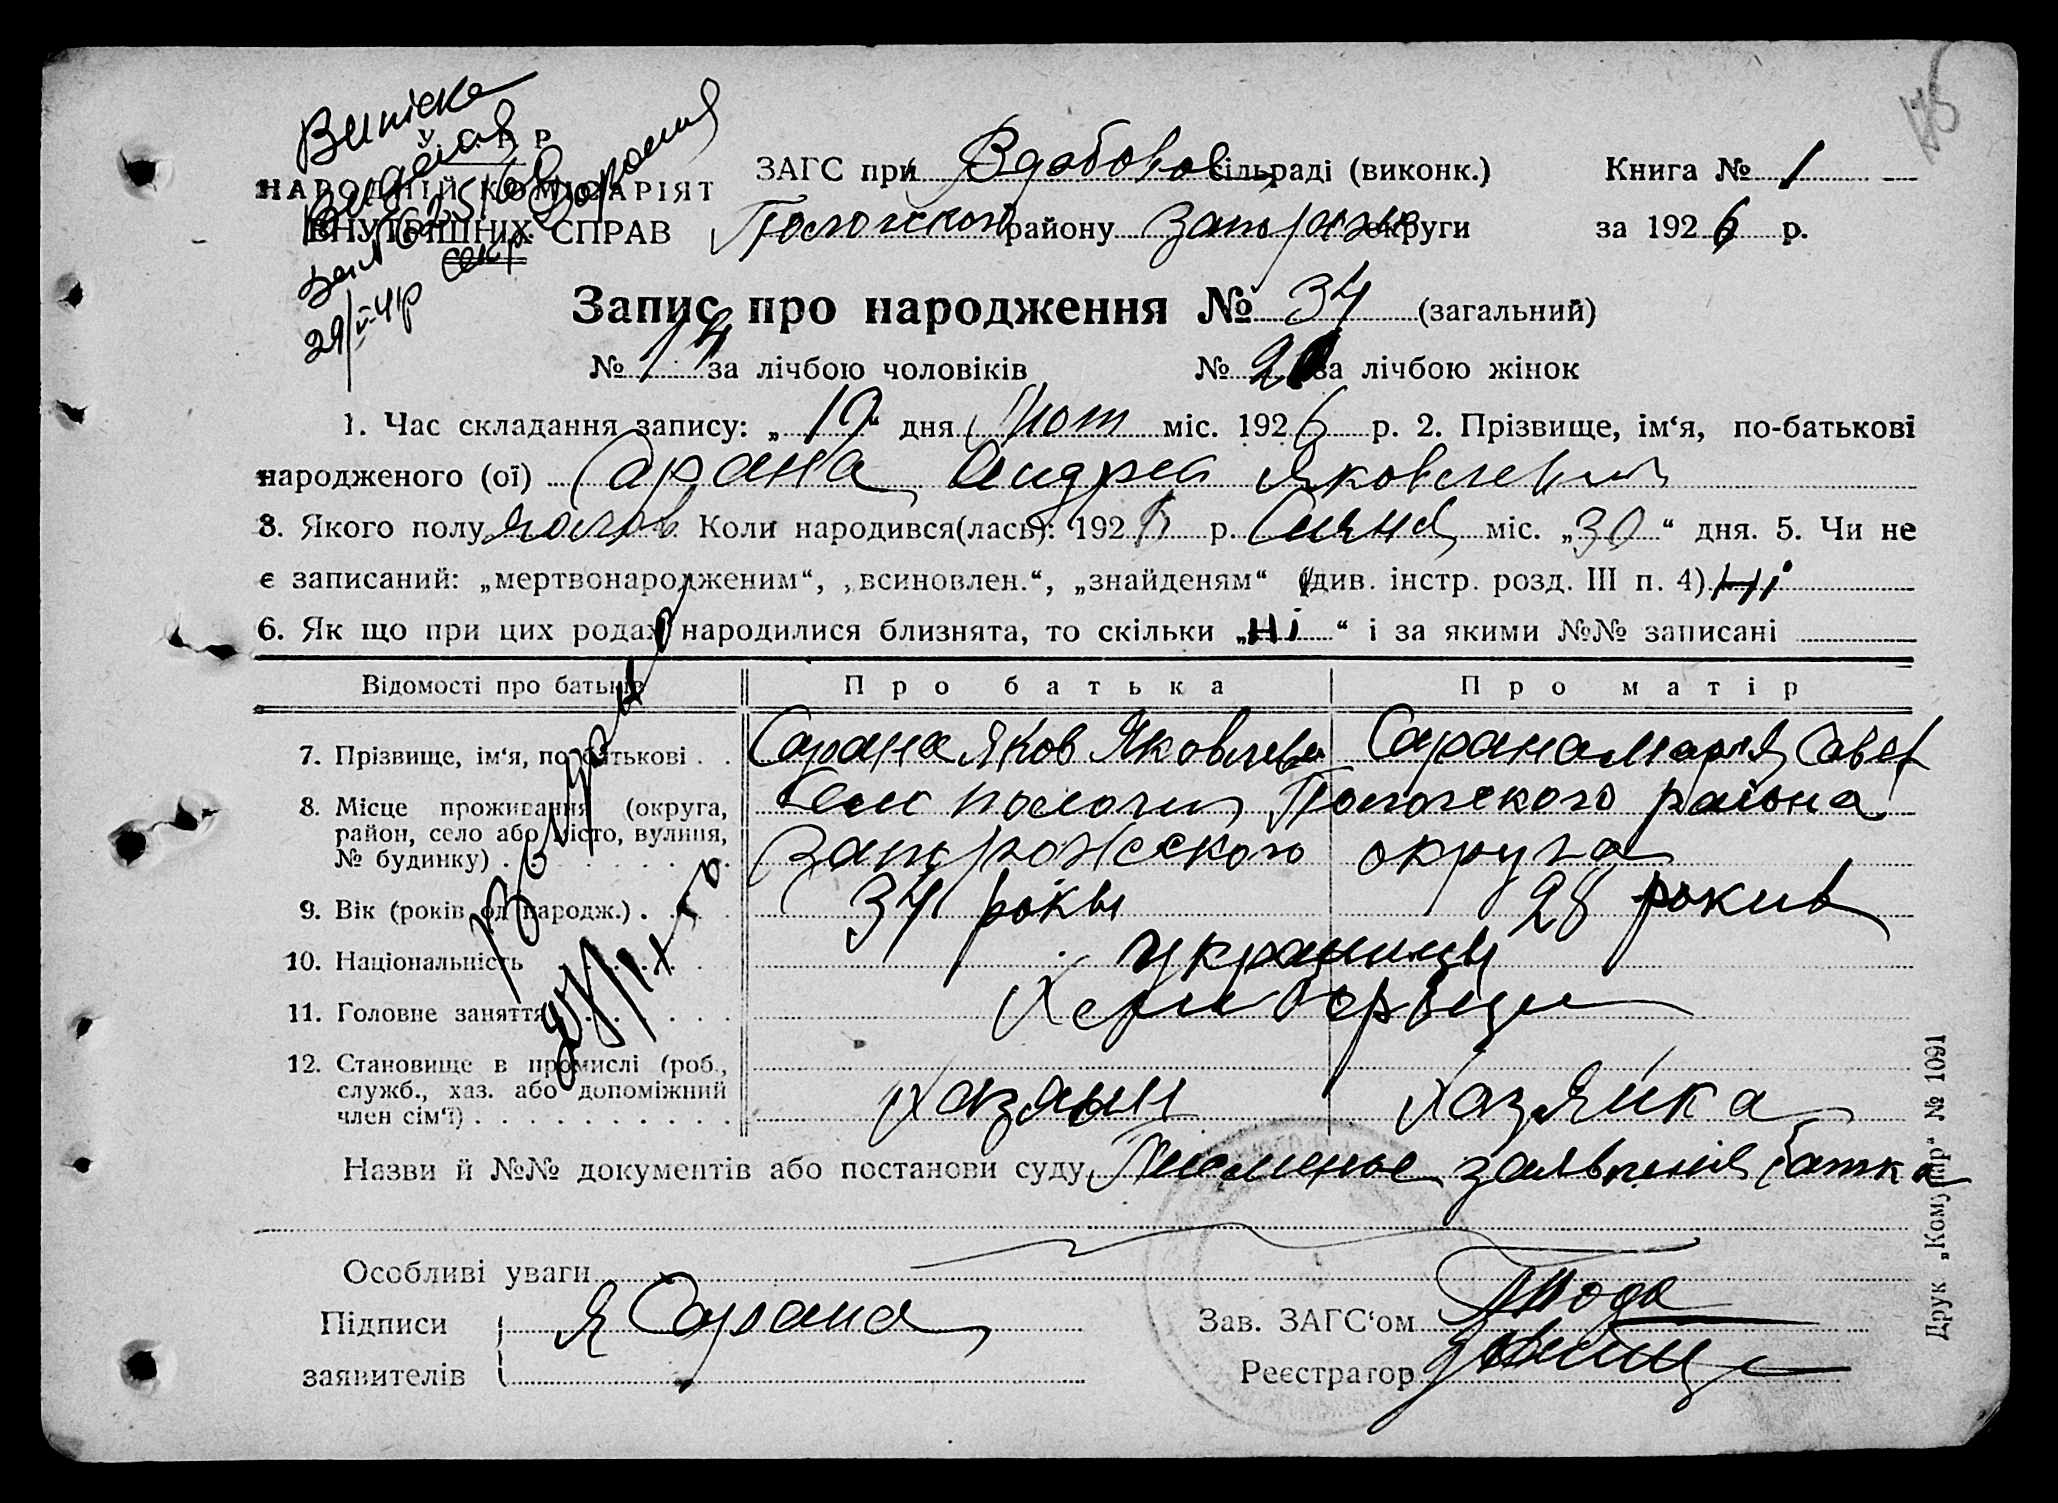 175
Виписка
У. С. Р. Р.
НАРОДНІЙ КОМІСАРІЯТ
ВНУТРІШНІХ СПРАВ
ЗАГС при сільраді (виконк.) Книга № 1
Пологского району округи за 1926 р.
29/V-41р
Запис про народження № 34 (загальний)
№ 14 за лічбою чоловіків № 20 за лічбою жінок
1. Час складання запису: „19“ дня Лют міс. 1926 р. 2. Прізвище, ім‘я, по-батькові
народженого (ої) Сарана Андрей Яковлевич
3. Якого полу Чолов. Коли народився(лась): 1926 р. Сичня міс. „30“ дня. 5. Чи не
є записаний: „мертвонародженим“, „всиновлен.“, „знайденям“ (див. інстр. розд. III п. 4) Ні
6. Як що при цих родах народилися близнята, то скільки „Ні“ і за якими №№ записані
Відомості про батьків Про батька Про матір
7. Прізвище, ім‘я, по-батькові . . Сарана Яков Яковлев Сарана Мария Савет
8. Місце проживання (округа, район, село або місто, вулиця, № будинку) . Село Пологи Пологского района
Запорожского округа
9. Вік (років од народж.) . 34 рокы 28 рокив
10. Національність украинцы
11. Головне заняття Хлиборобци
12. Становище в промислі (роб., служб., хаз. або допоміжний член сім‘ї) . Хазяын Хазяйка
Назви й №№ документів або постанови суду Писменые заявления батка
Особливі уваги
Підписи заявителів Я Сарана
Зав. ЗАГС‘ом
Реєстратор
Друк „Комунар“ № 1091